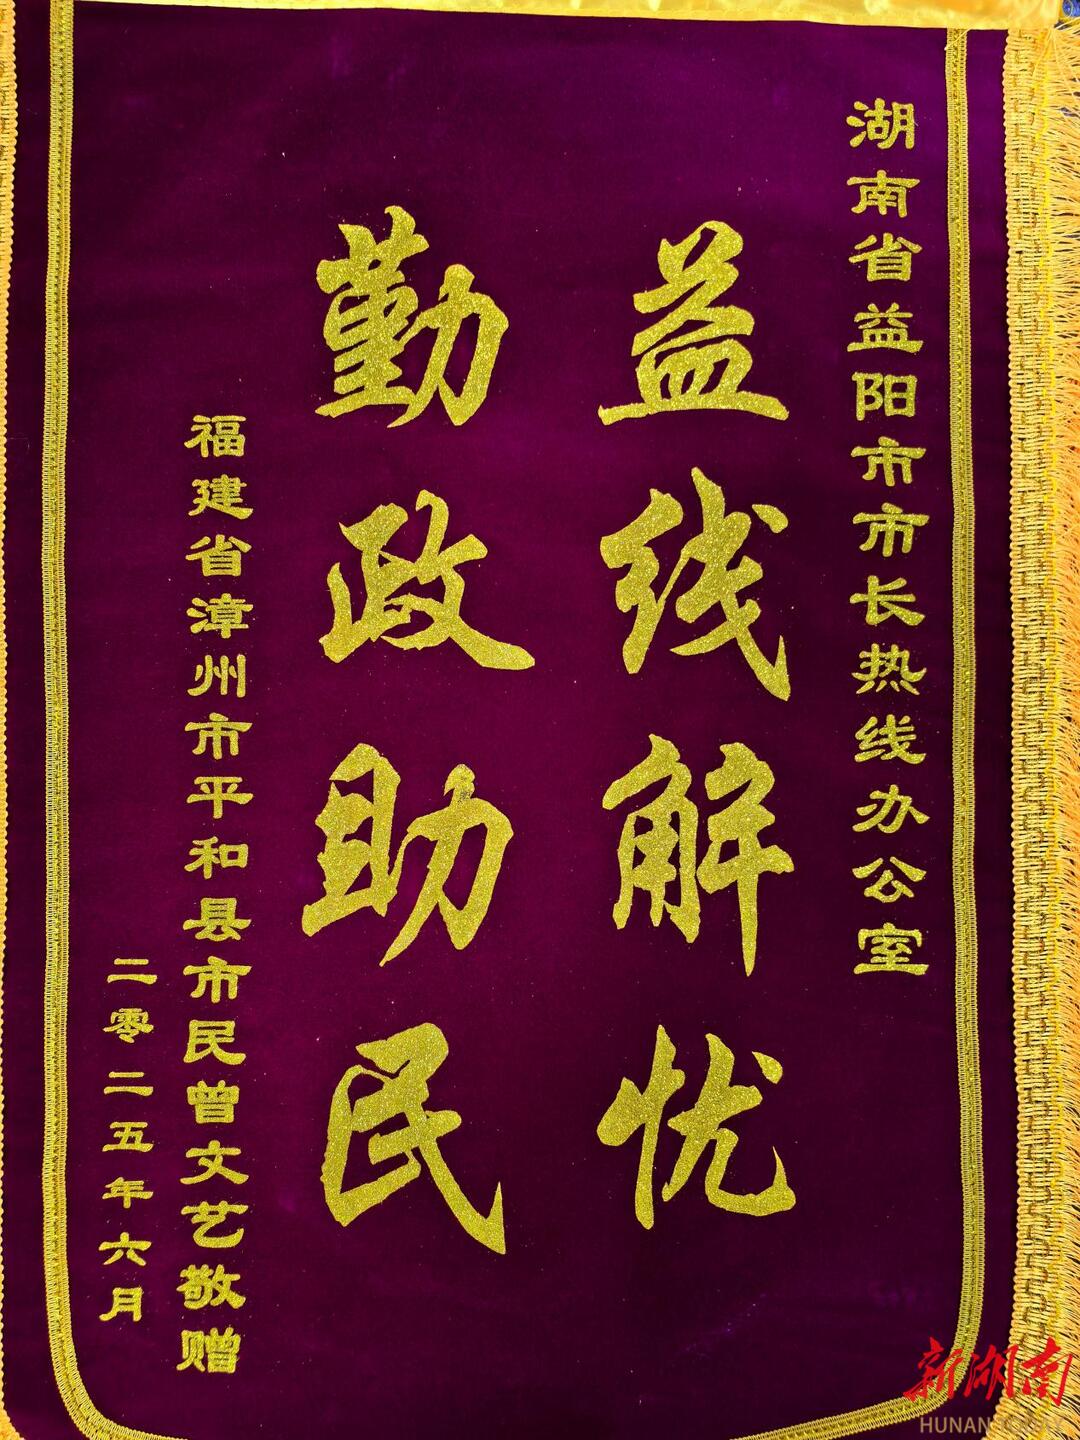 湖南省益阳市市长热线办公室
益线解忧
勤政助民
福建省漳州市平和县市民曾文艺敬赠
二零二五年六月
新湖南
HUNAN TODAY